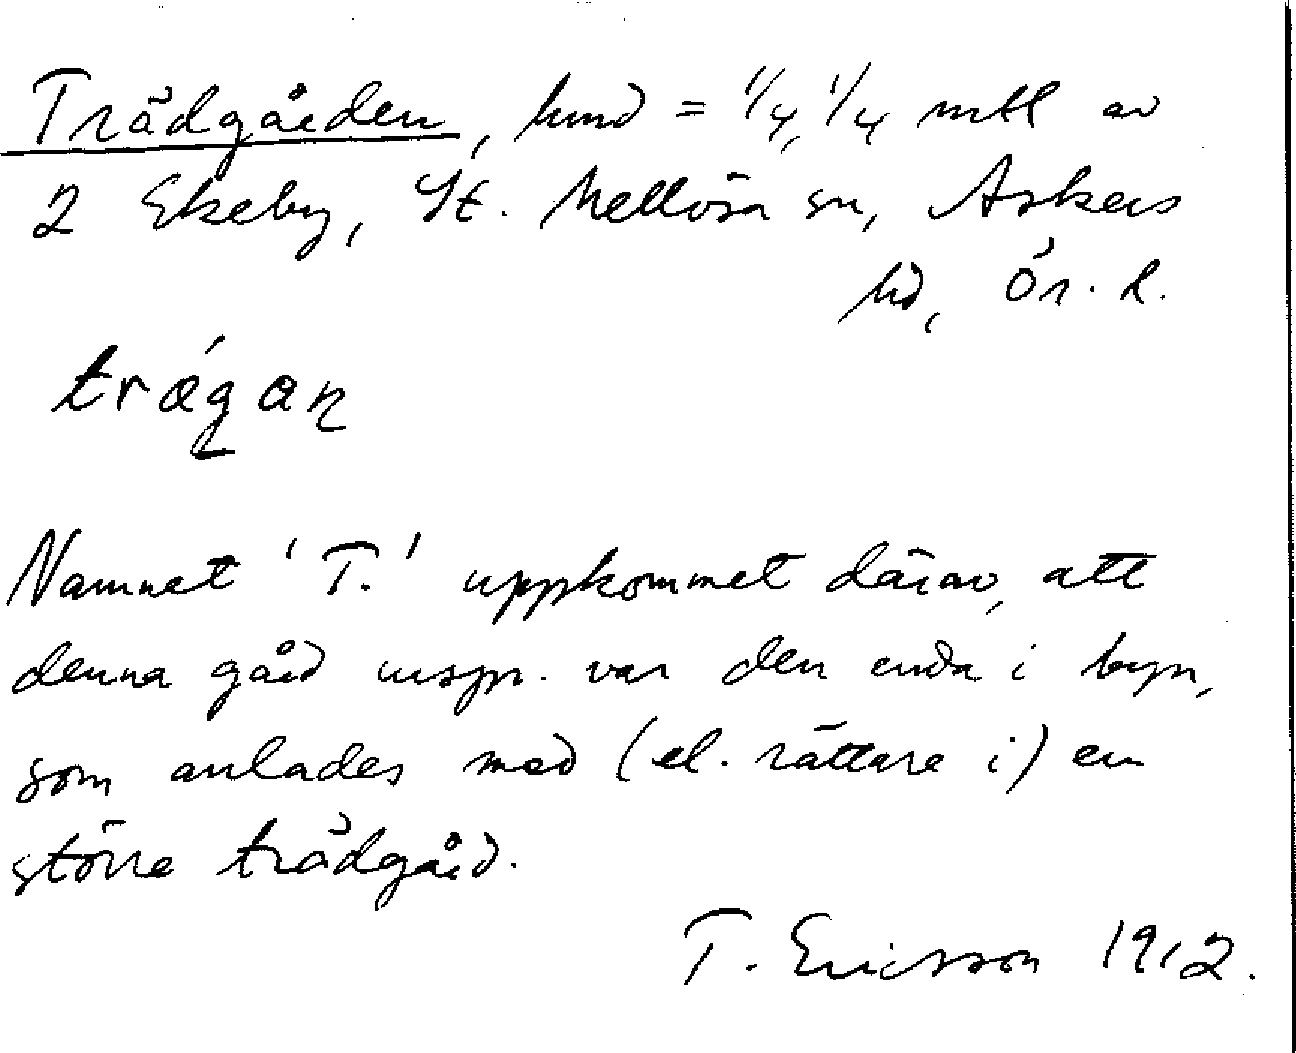 Trädgården, hmd = 1/4, 1/4 mtl av
2 Ekeby, St. Mellösa sn, Askers
hd, Ör. l.
trǽgan
Namnet 'T.' uppkommet därav, att
denna gård urspr. var den enda i byn,
som anlades med (el. rättare i) en
större trädgård.
T. Ericsson 1912.